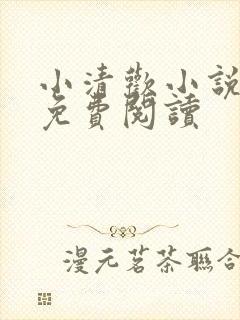 小清歡小說
免費閱讀
漫元茗茶聯合